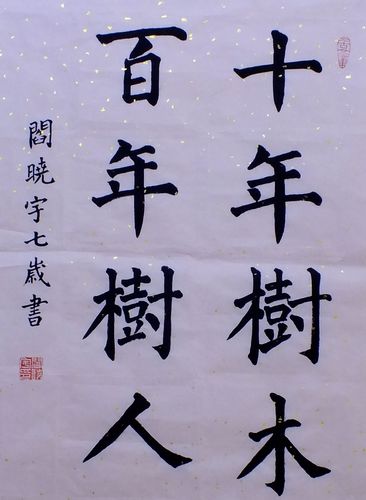 十年樹木
百年樹人
閻曉宇七歲書